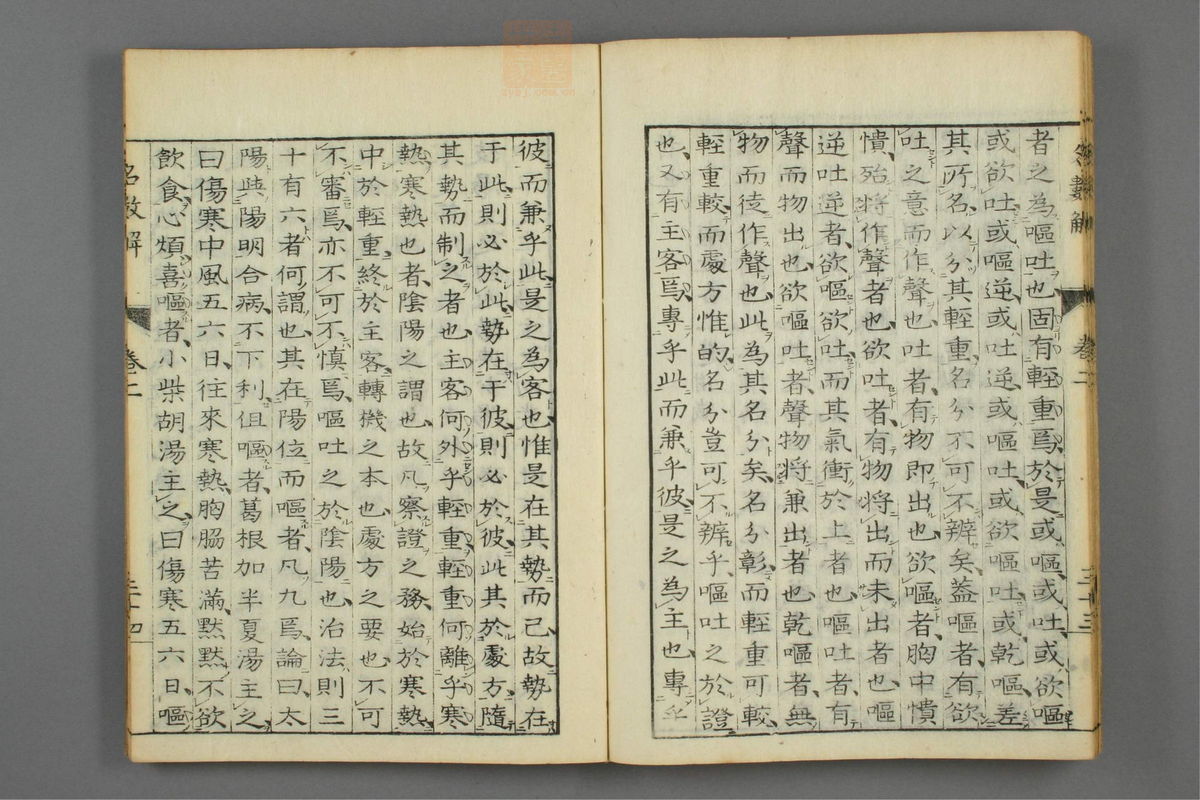 者之為嘔吐也固有輕重焉於是或嘔或吐或欲嘔
或欲吐或嘔逆或吐逆或嘔吐或欲嘔吐或乾嘔差
其所名以分其輕重名分不可不辨矣蓋嘔者有欲
吐之意而作聲也吐者有物即出也欲嘔者胸中憒
憒殆將作聲者也欲吐者有物將出而未出者也嘔
逆吐逆者欲嘔欲吐而其氣衝於上者也嘔吐者有
聲而物出也欲嘔吐者聲物將兼出者也乾嘔者無
物而徒作聲也此為其名分矣名分彰而輕重可較
輕重較而處方惟的名分豈可不辨乎嘔吐之於證
也又有主客焉專乎此而兼乎彼是之為主也專乎
卷二
三十三
彼而兼乎此是之為客也惟是在其勢而已故勢在
于此則必於此勢在于彼則必於彼此其於處方隨
其勢而制之者也主客何外乎輕重輕重何離乎寒
熱寒熱也者陰陽之謂也故凡察證之務始於寒熱
中於輕重終於主客轉機之本也處方之要也不可
不審焉亦不可不慎焉嘔吐之於陰陽也治法則三
十有六者何謂也其在陽位而嘔者凡九焉論曰太
陽與陽明合病不下利但嘔者葛根加半夏湯主之
曰傷寒中風五六日往來寒熱胸脇苦滿默默不欲
飲食心煩喜嘔者小柴胡湯主之曰傷寒五六日嘔
名數解
卷二
三十四